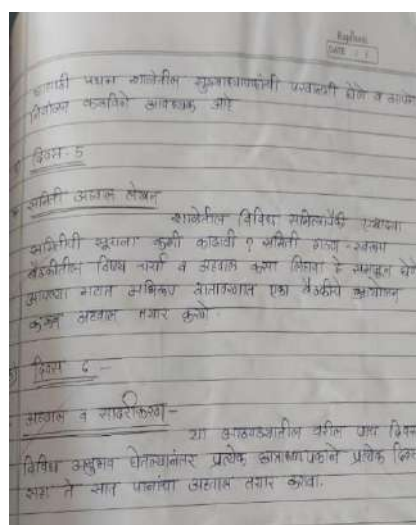 DATE
यासाठी प्रथम शाळेतील मुख्याध्यापकांची परवानगी घेणे व त्यांना
नियोजन कळविणे आवश्यक आहे
दिवस-5
समिती अहवाल लेखन
शाळेतील विविध समित्यांपैकी एखाद्या
समितीची सूचना कशी काढावी ? समिती रचना - स्वरूप
बैठकीतील विषय चर्चा व अहवाल कसा लिहावा हे समजून घेणे
आपल्या गटात अभिरूप वातावरणात एका बैठकीचे आयोजन
करून अहवाल तयार करणे.
दिवस 6 -
अहवाल व सादरीकरण -
या आठवड्यातील वरील पाच दिवस
विविध अनुभव घेतल्यानंतर प्रत्येक छात्राध्यापकाने प्रत्येक
सहा ते सात पानांचा अहवाल तयार करावा.